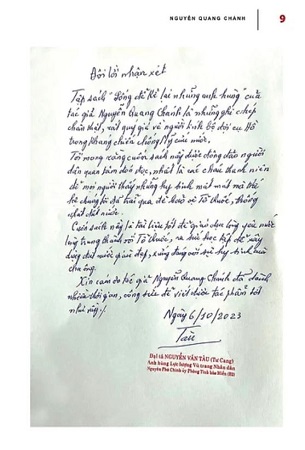 NGUYỄN QUANG CHÁNH
9
Đôi lời nhận xét
Tập sách "Sống để kể lại những anh hùng" của
tác giả Nguyễn Quang Chánh là những ghi chép
chân thật, rất quý giá về người lính bộ đội cụ Hồ
trong kháng chiến chống Mỹ cứu nước.
Tôi mong rằng cuốn sách này được đông đảo người
dân quan tâm đón đọc, nhất là các cháu thanh niên
để mọi người thấy những hy sinh mất mát mà thế
hệ chúng tôi đã trải qua để bảo vệ Tổ Quốc, thống
nhất đất nước.
Cuốn sách này là tài liệu tốt để giáo dục lòng yêu nước
lòng trung thành với Tổ Quốc, ra sức học tập để xây
dựng đất nước giàu đẹp, xứng đáng với sự hy sinh của
cha ông.
Xin cám ơn tác giả Nguyễn Quang Chánh đã dành
nhiều thời gian, công sức để viết được tác phẩm tốt
như vậy./.
Ngày 6/10/2023
Tàu
Đại tá NGUYỄN VĂN TÀU (Tư Cang)
Anh hùng Lực lượng Vũ trang Nhân dân
Nguyên Phó Chính ủy Phòng Tình báo Miền (B2)